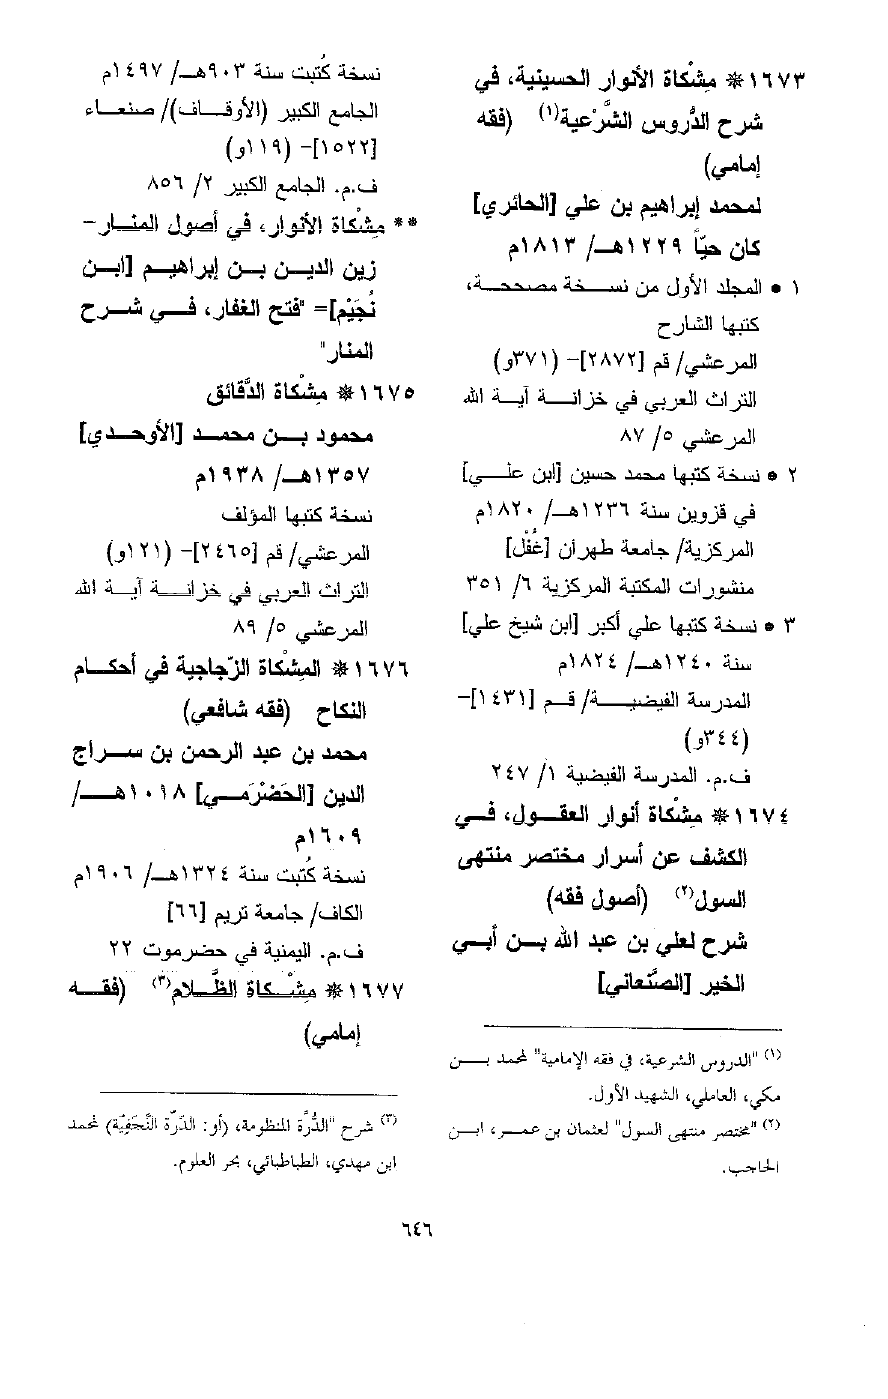 ١٦٧٣ * مِشْكاة الأنوار الحسينية، في
شرح الدُّروس الشَّرْعية(١) (فقه
إمامي)
لمحمد إبراهيم بن علي [الحائري]
كان حيّاً ١٢٢٩هـ/ ١٨١٣م
١ • المجلد الأول من نسخة مصححة،
كتبها الشارح
المرعشي/ قم [٢٨٧٢]– (٣٧١و)
التراث العربي في خزانة آية الله
المرعشي ٥/ ٨٧
٢ • نسخة كتبها محمد حسين [ابن علي]
في قزوين سنة ١٢٣٦هـ/ ١٨٢٠م
المركزية/ جامعة طهران [غُفْل]
منشورات المكتبة المركزية ٦/ ٣٥١
٣ • نسخة كتبها علي أكبر [ابن شيخ علي]
سنة ١٢٤٠هـ/ ١٨٢٤م
المدرسة الفيضية/ قم [١٤٣١]–
(٣٤٤و)
ف.م. المدرسة الفيضية ١/ ٢٤٧
١٦٧٤ * مِشْكاة أنوار العقول، في
الكشف عن أسرار مختصر منتهى
السول(٢) (أصول فقه)
شرح لعلي بن عبد الله بن أبي
الخير [الصَّنعاني]
(١) "الدروس الشرعية، في فقه الإمامية" لمحمد بن
مكي، العاملي، الشهيد الأول.
(٢) "مختصر منتهى السول" لعثمان بن عمر، ابن
الحاجب.
نسخة كُتبت سنة ٩٠٣هـ/ ١٤٩٧م
الجامع الكبير (الأوقاف)/ صنعاء
[١٥٢٢]– (١١٩و)
ف.م. الجامع الكبير ٢/ ٨٥٦
** مِشْكاة الأنوار، في أصول المنار–
زين الدين بن إبراهيم [ابن
نُجَيْم]= "فتح الغفار، في شرح
المنار"
١٦٧٥ * مِشْكاة الدَّقائق
محمود بن محمد [الأوحدي]
١٣٥٧هـ/ ١٩٣٨م
نسخة كتبها المؤلف
المرعشي/ قم [٢٤٦٥]– (١٢١و)
التراث العربي في خزانة آية الله
المرعشي ٥/ ٨٩
١٦٧٦ * المِشْكاة الزّجاجية في أحكام
النكاح (فقه شافعي)
محمد بن عبد الرحمن بن سراج
الدين [الحَضْرَمي] ١٠١٨هـ/
١٦٠٩م
نسخة كُتبت سنة ١٣٢٤هـ/ ١٩٠٦م
الكاف/ جامعة تريم [٦٦]
ف.م. اليمنية في حضرموت ٢٢
١٦٧٧ * مِشْكاة الظَّلام(٣) (فقه
إمامي)
(٣) شرح "الدُّرَّة المنظومة، (أو: الدّرّة النَّجَفِيَّة) لمحمد
ابن مهدي، الطباطبائي، بحر العلوم.
٦٤٦